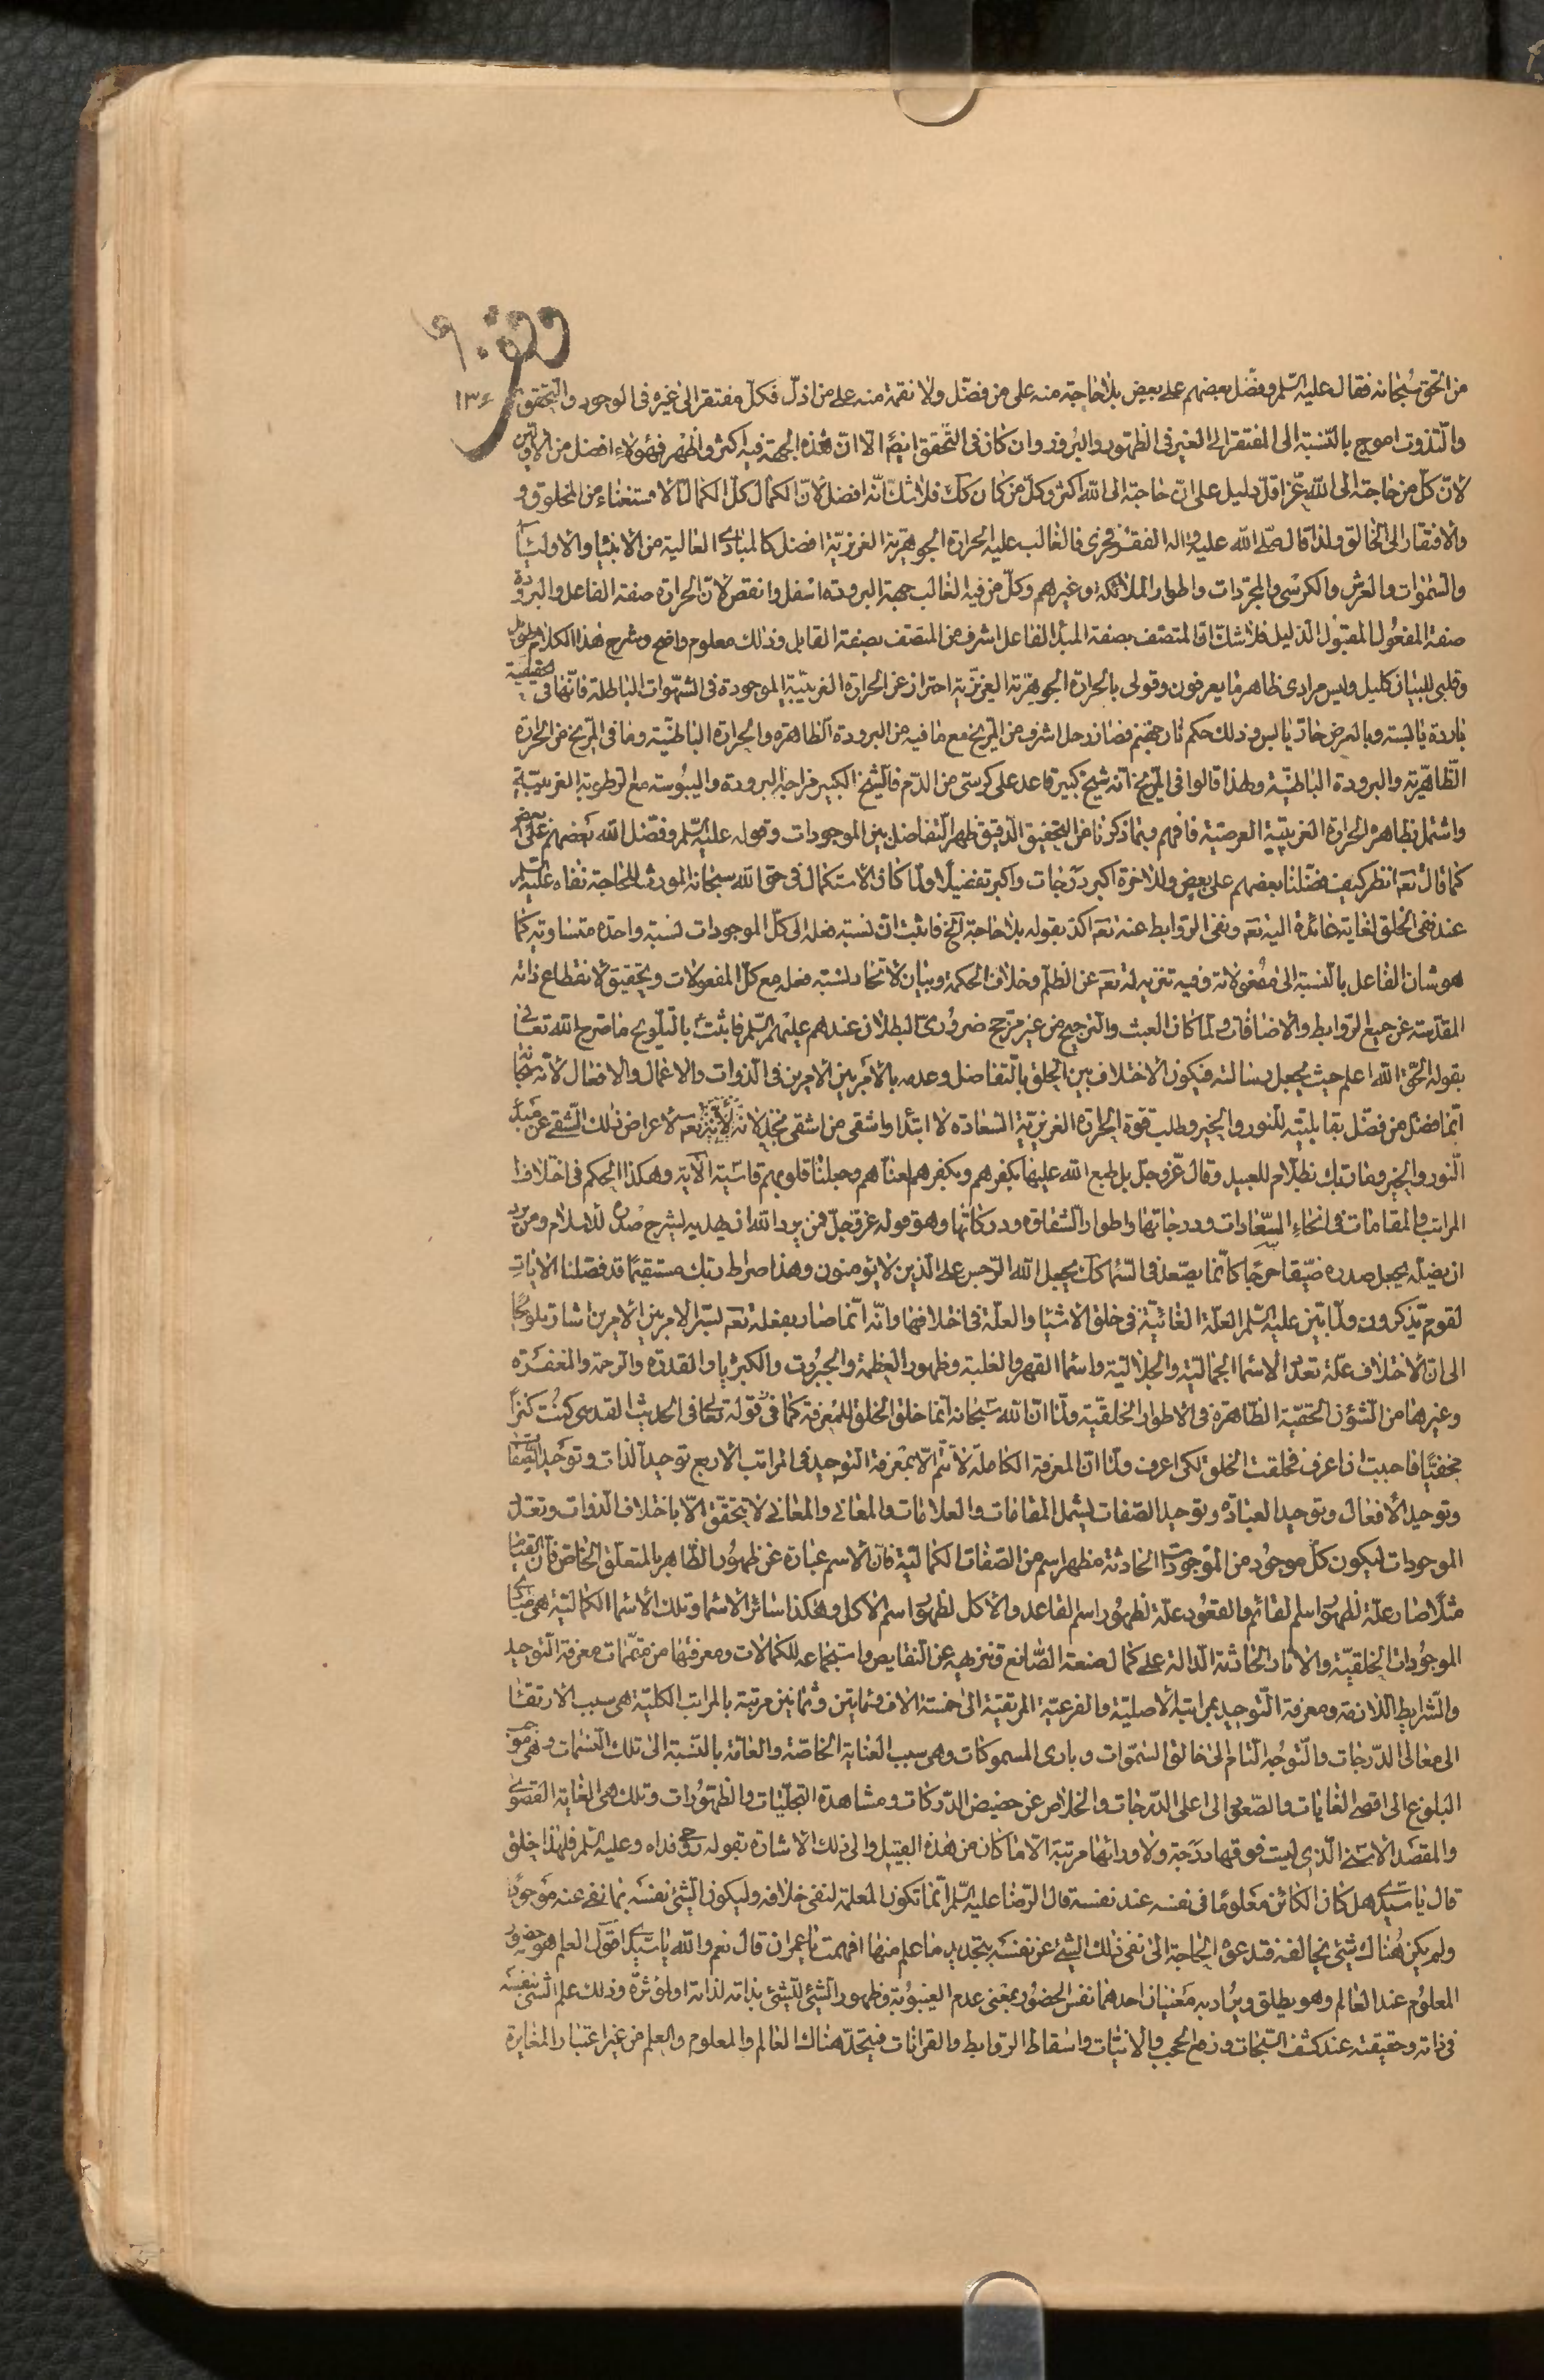 وقف
١٣٤
من الحق سبحانه فقال عليه السلم وفضل بعضهم على بعض بلا حاجة منه على من فضل ولا نقمة منه على من اذل فكل مفتقر الى غيره فى الوجود والتحقق
والتذوت احوج بالنسبة الى المفتقر الى الغير فى الظهور والبروز وان كان فى التحقق ايضا الا ان هذه الجهة فيه اكثر واظهر فهؤلاء افضل من الاولين
لان كل من حاجته الى الله عز اقل دليل على ان حاجته الى الله اكثر وكل من كان كك فلا شك انه افضل لان الكمال كل الكمال الاستغناء من المخلوق و
والافتقار الى الخالق ولذا قال صلى الله عليه واله الفقر فخرى فالغالب عليه الحرارة الجوهرية الغريزية افضل كالمبادى العالية من الانبياء والاولياء
والسموات والعرش والكرسى والمجردات واطوار الملائكة وغيرهم وكل من فيه الغالب جهة البرودة اسفل وانقص لان الحرارة صفة الفاعل والبرودة
صفة المفعول المقبول الذليل فلا شك ان المتصف بصفة المبدا الفاعل اشرف من المتصف بصفة القابل وذلك معلوم واضح وشرح هذا الكلام طويل
وقلبى للبيان كليل وليس مرادى ظاهر ما يعرفون وقولى بالحرارة الجوهرية الغريزية احتراز عن الحرارة الغريبية الموجودة فى الشهوات الباطلة فانها فى الحقيقة
باردة يابسة وبالعرض حار يابس وذلك حكم نار جهنم فصار زحل اشرف من المريخ مع ما فيه من البرودة الظاهرة والحرارة الباطنية وما فى المريخ من الحرارة
الظاهرية والبرودة الباطنية ولهذا قالوا فى المريخ انه شيخ كبير قاعد على كرسى من الدم فالشيخ الكبير مزاجه البرودة واليبوسة مع الرطوبة الغريبية
واشتمل بظاهره الحرارة الغريبية العرضية فافهم وبما ذكرنا من التحقيق الدقيق ظهر التفاضل بين الموجودات وقوله عليه السلم وفضل الله بعضهم على بعض
كما قال تعه انظر كيف فضلنا بعضهم على بعض وللاخرة اكبر درجات واكبر تفضيلا ولما كان الاستكمال فى حق الله سبحانه المورث للحاجة نفاه عليه السلم
عند نفى الخلق لغاية عائدة اليه تعه ونفى الروابط عنه تعه اكد بقوله بلا حاجة الخ فاثبت ان نسبة فعله الى كل الموجودات نسبة واحدة متساوية كما
هو شان الفاعل بالنسبة الى مفعولاته وفيه تنزيه له تعه عن الظلم وخلاف الحكمة وبيان لاتحاد نسبة فعله مع كل المفعولات وتحقيق لانقطاع ذاته
المقدسة عن جميع الروابط والاضافات ولما كان العبث والترجيح من غير مرجح ضرورى البطلان عندهم عليهم السلم فاثبت بالتلويح ما صرح الله تعالى
بقوله الحق الله اعلم حيث يجعل رسالته فيكون الاختلاف بين الخلق بالتفاضل وعدمه بالامر بين الامرين فى الذوات والاعمال والافعال لانه سبحانه
انما فضل من فضل بقابليته للنور والخير وطلب قوة الحرارة الغريزية السعادة لا ابتداء واشقى من اشقى بخذلانه تعه لاعراض ذلك الشقى عن مبدء
النور والخير وما ربك بظلام للعبيد وقال عز وجل بل طبع الله عليها بكفرهم وبكفرهم لعناهم وجعلنا قلوبهم قاسية الآية وهكذا الحكم فى اختلاف
المراتب والمقامات فى انحاء السعادات ودرجاتها واطوار الشقاوة ودركاتها وهو قوله عز وجل فمن يرد الله ان يهديه يشرح صدره للاسلام ومن يرد
ان يضله يجعل صدره ضيقا حرجا كانما يصعد فى السماء كك يجعل الله الرجس على الذين لا يؤمنون وهذا صراط ربك مستقيما قد فصلنا الايات
لقوم يذكرون ولما بين عليه السلم العلة الغائية فى خلق الاشياء والعلة فى اختلافها وانه انما صار بفعله تعه لسر الامر بين الامرين اشار تلويحا
الى ان الاختلاف علة تعدد الاسماء الجمالية والجلالية واسماء القهر والغلبة وظهور العظمة والجبروت والكبرياء والقدرة والرحمة والمغفرة
وغيرها من الشؤن الحقية الظاهرة فى الاطوار الخلقية ولما ان الله سبحانه انما خلق الخلق للمعرفة كما فى قوله تعالى فى الحديث القدسى كنت كنزا
مخفيا فاحببت ان اعرف فخلقت الخلق لكى اعرف ولما ان المعرفة الكاملة لا تتم الا بمعرفة التوحيد فى المراتب الاربع توحيد الذات وتوحيد الصفات
وتوحيد الافعال وتوحيد العبادة وتوحيد الصفات يشمل المقامات والعلامات والمعانى والمعانى لا يتحقق الا باختلاف الذوات وتعدد
الموجودات ليكون كل موجود من الموجودات الحادثة مظهر اسم من الصفات الكمالية فان الاسم عبارة عن ظهور الظاهر بالمتعلق الخاص فان القيام
مثلا صار علة لظهور اسم القائم والقعود علة لظهور اسم القاعد والاكل لظهور اسم الاكل وهكذا سائر الاسماء وتلك الاسماء الكمالية هى مبادى
الموجودات الخلقية والاثار الحادثة الدالة على كمال صنعة الصانع وتنزهه عن النقايص واستجماعه للكمالات ومعرفتها من متممات معرفة التوحيد
والشرايط اللازمة ومعرفة التوحيد بمراتبه الاصلية والفرعية المرتقية الى خمسة الاف ومائتين وثمانين مرتبة بالمراتب الكلية هى سبب الارتقاء
الى معالى الدرجات والتوجه التام الى خالق السموات وبارى المسموكات وهى سبب العناية الخاصة والعامة بالنسبة الى تلك النسمات وهى
البلوغ الى اقصى الغايات والصعود الى اعلى الدرجات والخلاص عن حضيض الدركات ومشاهدة التجليات والظهورات وتلك هى الغاية القصوى
والمقصد الاسنى الذى ليست فوقها درجة ولا ورائها مرتبة الا ما كان من هذه القبيل والى ذلك الاشارة بقوله روحى فداه وعليه السلم فلهذا خلق
قال يا سيدى هل كان الكائن معلوما فى نفسه عند نفسه قال الرضا عليه السلم انما تكون المعلمة لنفى خلافه وليكون الشئ نفسه بما نفى عنه موجودا
ولم يكن هناك شئ يخالفه فتدعوه الحاجة الى نفى ذلك الشئ عن نفسه بتجديد ما علم منها افهمت يا عمران قال نعم والله يا سيدى اقول العلم هو حضور
المعلوم عند العالم وهو يطلق ويراد به معنيان احدهما نفس الحضور بمعنى عدم الغيبوبة وظهور الشئ للشئ بذاته لذاته او لمؤثره وذلك علم الشئ بنفسه
فى ذاته وحقيقته عند كشف السبحات ورفع الحجب والانيات واسقاط الروابط والقرانات فيتحد هناك العالم والمعلوم والعلم من غير اعتبار المغايرة